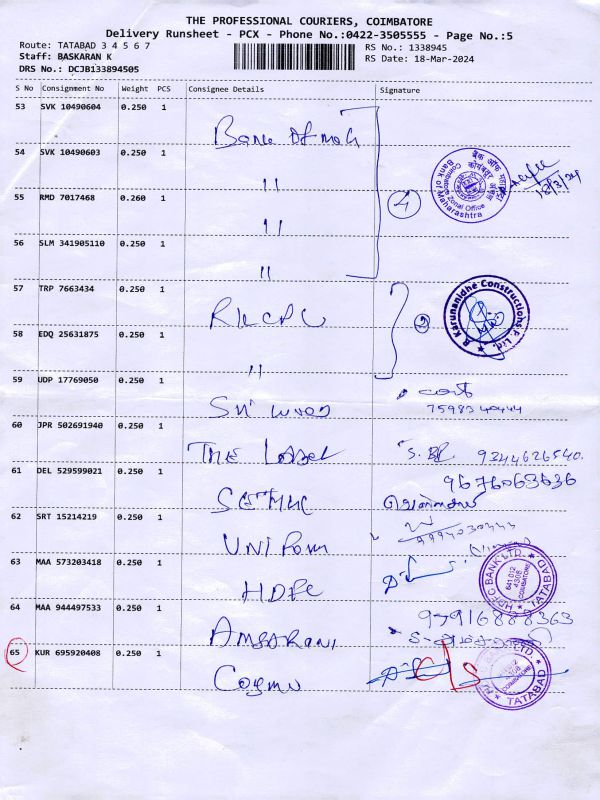 THE PROFESSIONAL COURIERS, COIMBATORE
Delivery Runsheet - PCX - Phone No.:0422-3505555 - Page No.:5
Route: TATABAD 3 4 5 6 7
RS No.: 1338945
Staff: BASKARAN K
RS Date: 18-Mar-2024
DRS No.: DCJB133894505
S No Consignment No Weight PCS Consignee Details Signature
53 SVK 10490604 0.250 1
Bank of mah
54 SVK 10490603 0.250 1
"
55 RMD 7017468 0.260 1
"
4
बैंक ऑफ महाराष्ट्र
Coimbatore Zonal Office
Bank of Maharashtra
18/3/24
56 SLM 341905110 0.250 1
"
57 TRP 7663434 0.250 1
RKCPL
2
R Karunanidhe Constructions P Ltd.
58 EDQ 25631875 0.250 1
"
59 UDP 17769050 0.250 1
Sri
7598340444
60 JPR 502691940 0.250 1
THE LABEL
9344626540.
61 DEL 529599021 0.250 1
9676063636
62 SRT 15214219 0.250 1
UNIFORM
63 MAA 573203418 0.250 1
HDFC
HDFC BANK LTD.
641 012
COIMBATORE
TATABAD
64 MAA 944497533 0.250 1
AMBARANI
65 KUR 695920408 0.250 1
TATABAD